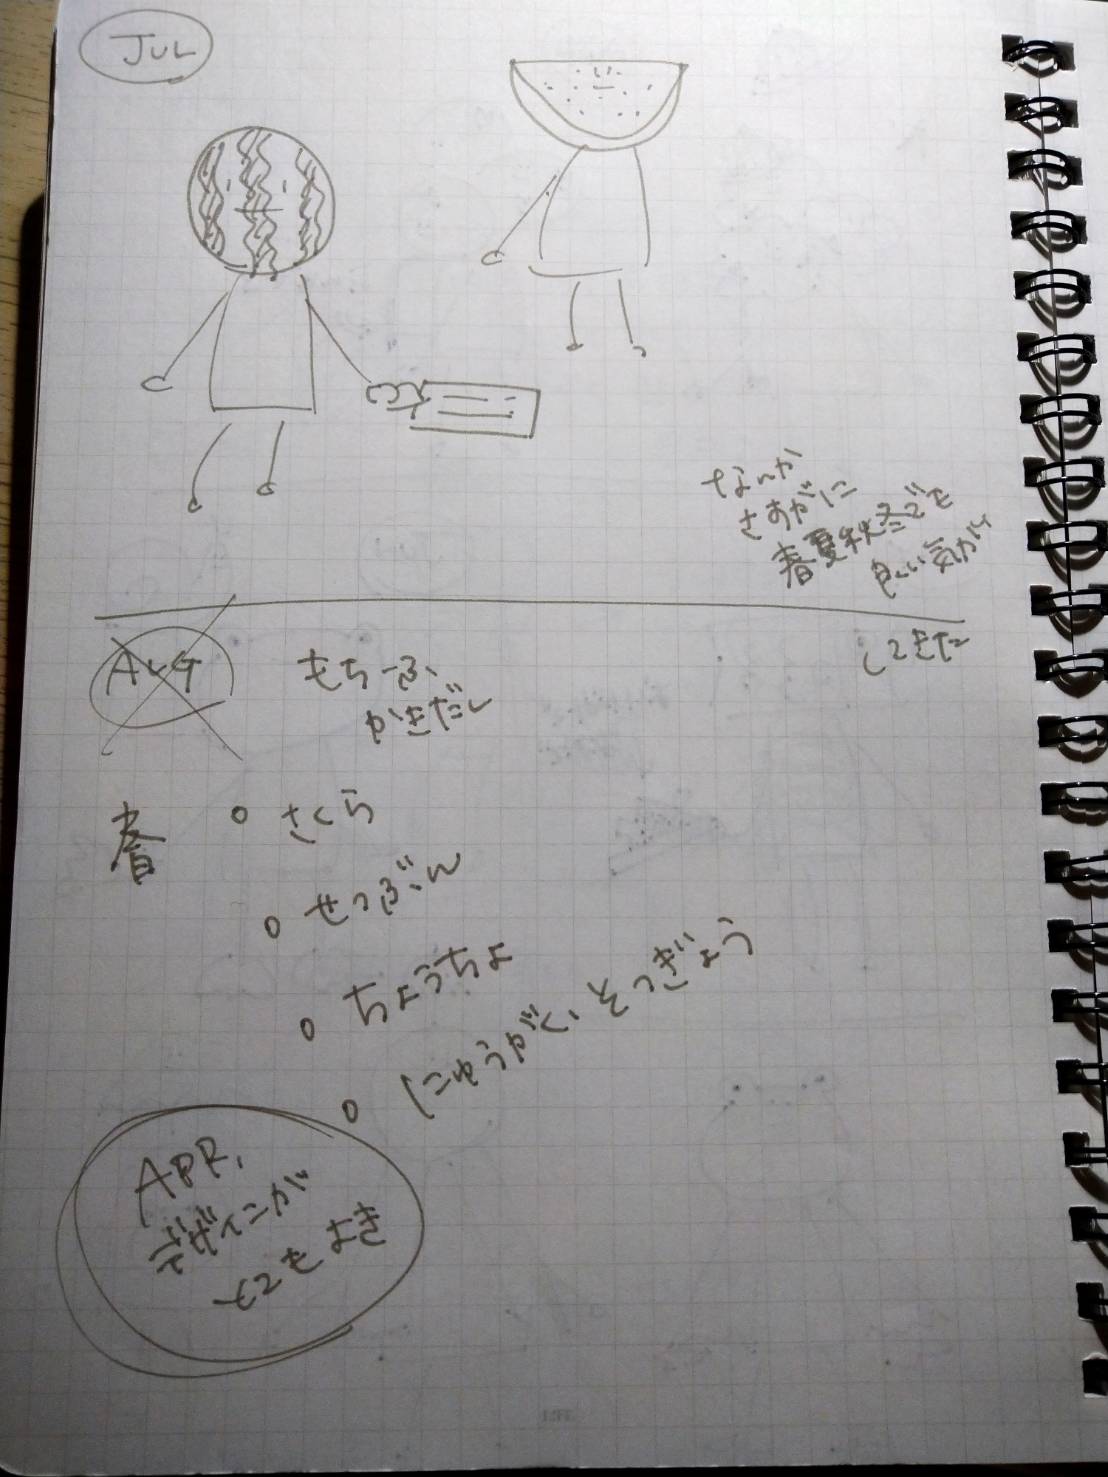 JUL
なんか
さすがに
春夏秋冬でも
良い気が
してきた
AUG
もちーふ
かきだし
春
○ さくら
○ せつぶん
○ ちょうちょ
○ にゅうがく、そつぎょう
APR,
デザインが
とてもよき